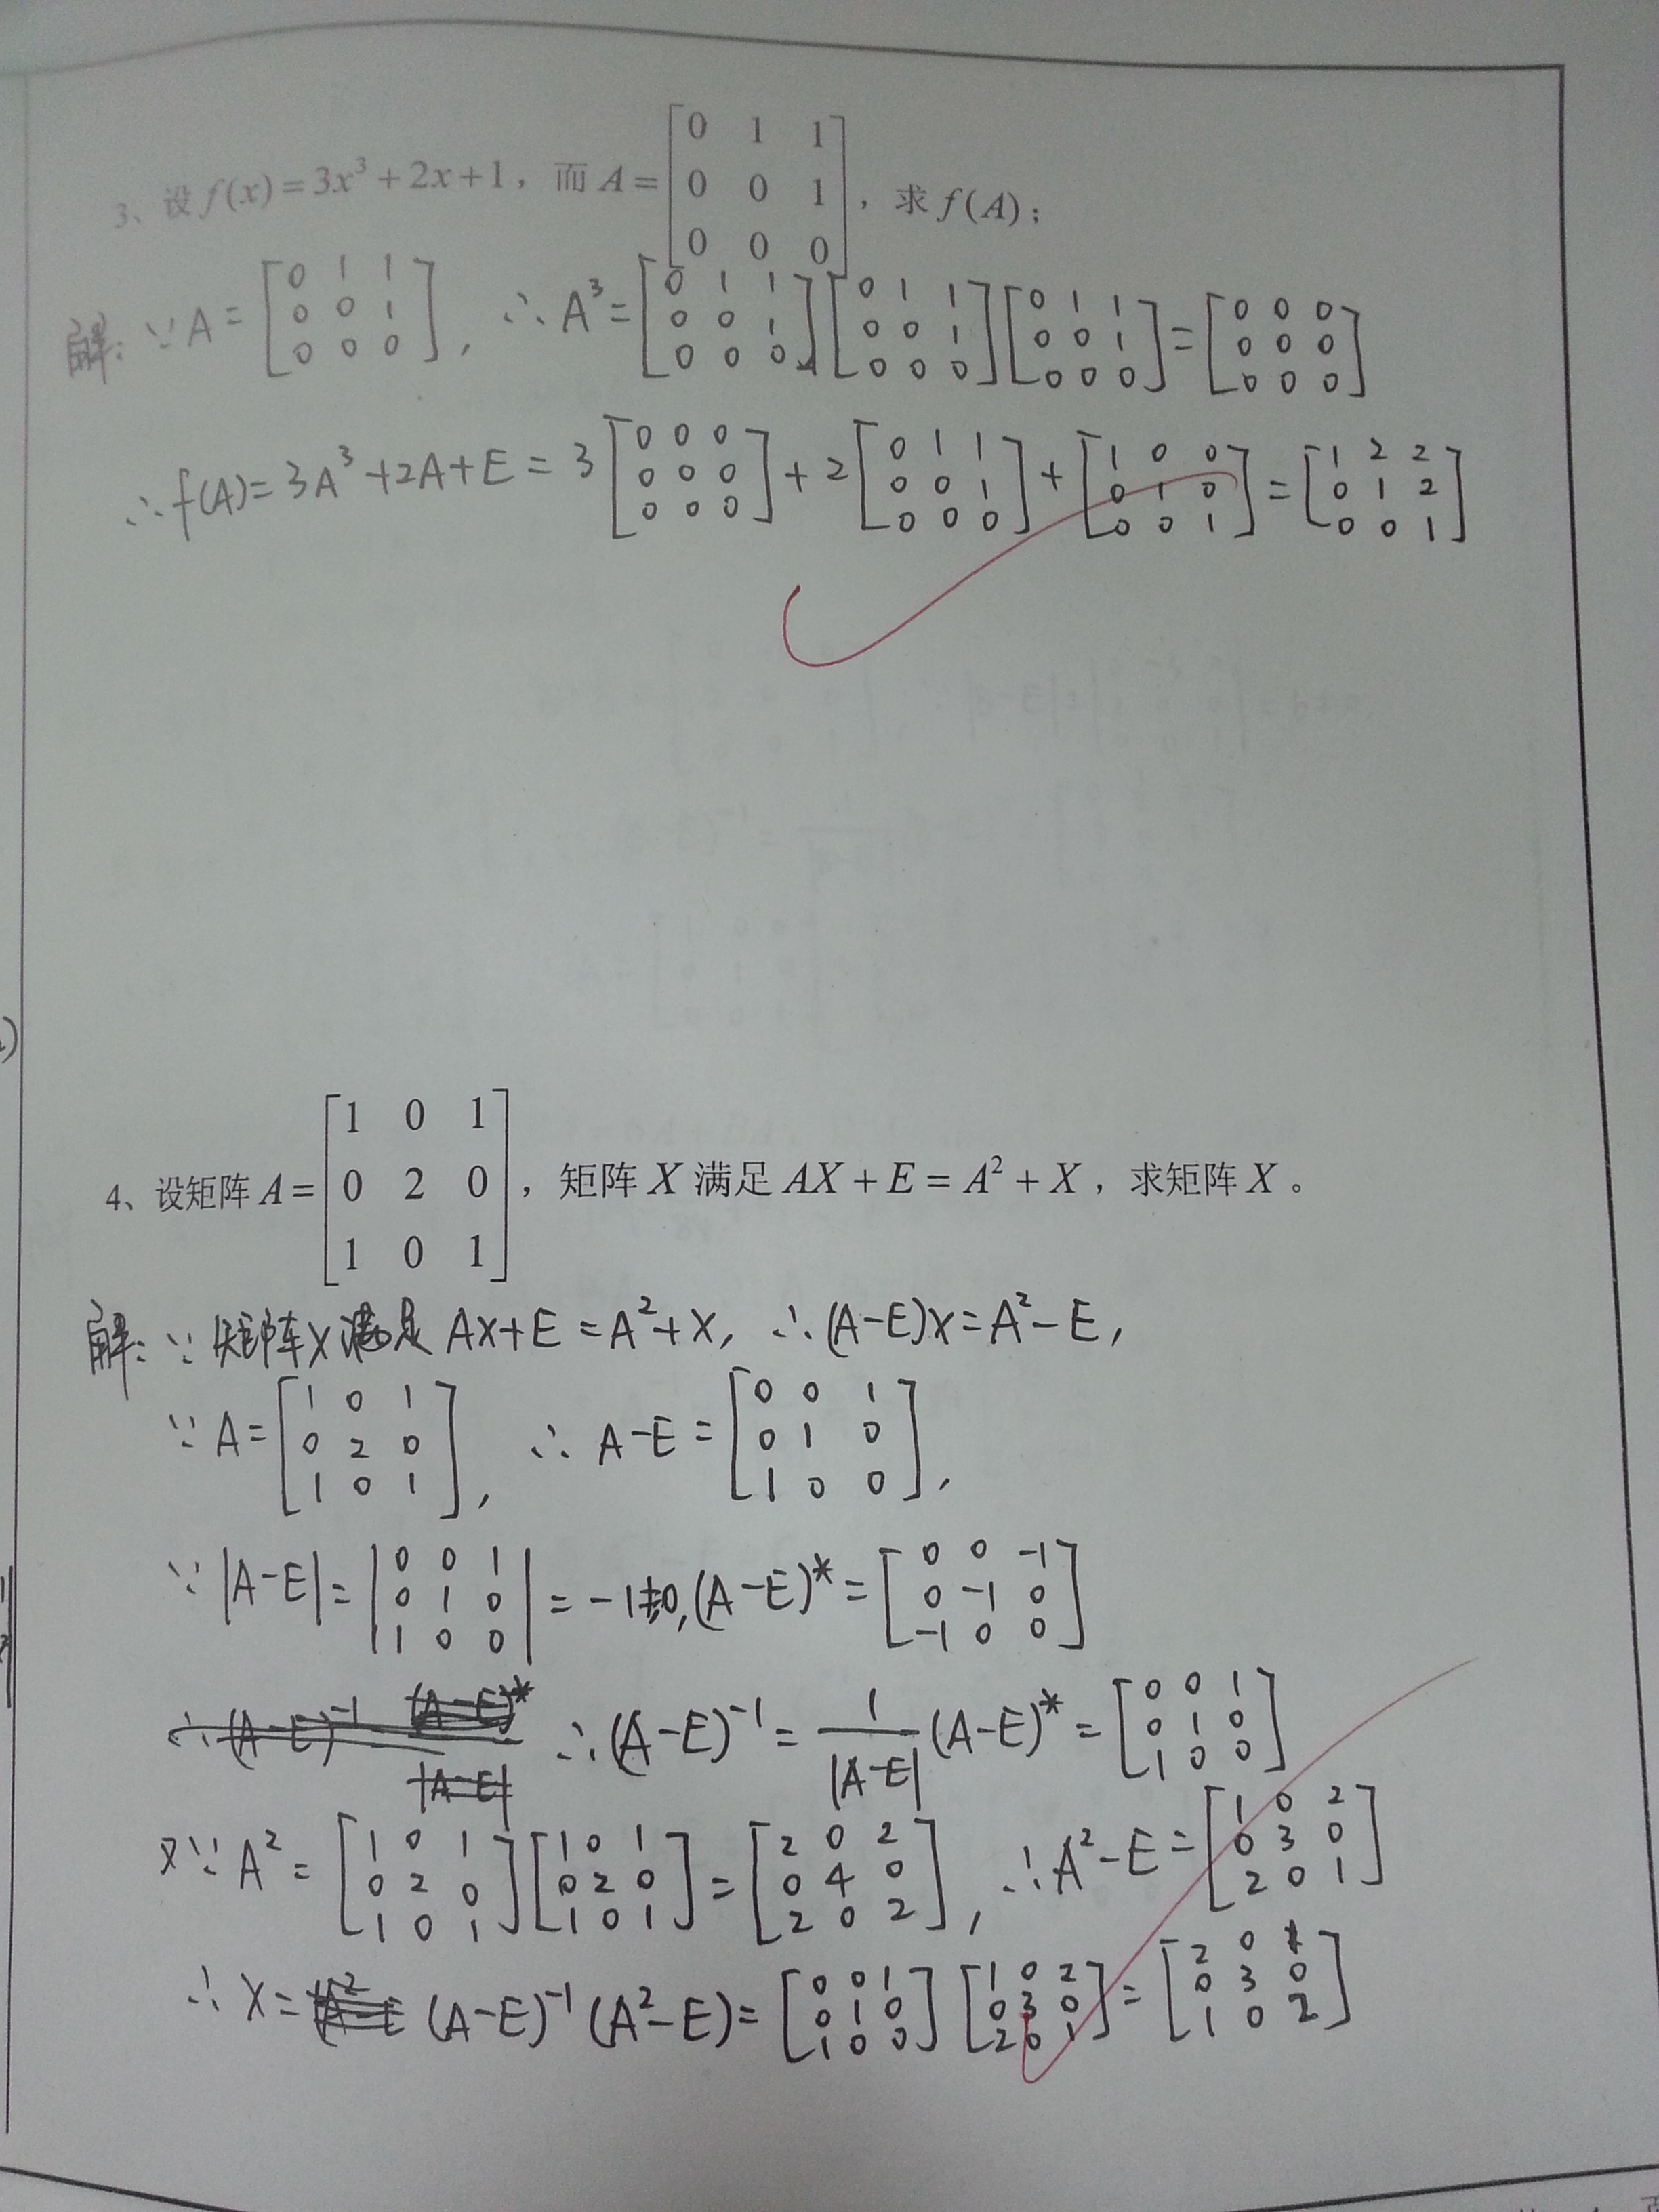 3、设 f(x)=3x³+2x+1，而 A=[0 1 1; 0 0 1; 0 0 0]，求 f(A)；
解：∵A=[0 1 1; 0 0 1; 0 0 0], ∴A³=[0 1 1; 0 0 1; 0 0 0][0 1 1; 0 0 1; 0 0 0][0 1 1; 0 0 1; 0 0 0]=[0 0 0; 0 0 0; 0 0 0]
∴f(A)=3A³+2A+E=3[0 0 0; 0 0 0; 0 0 0]+2[0 1 1; 0 0 1; 0 0 0]+[1 0 0; 0 1 0; 0 0 1]=[1 2 2; 0 1 2; 0 0 1]
4、设矩阵 A=[1 0 1; 0 2 0; 1 0 1]，矩阵 X 满足 AX+E=A²+X，求矩阵 X。
解：∵矩阵X满足 AX+E=A²+X, ∴(A-E)X=A²-E,
∵A=[1 0 1; 0 2 0; 1 0 1], ∴A-E=[0 0 1; 0 1 0; 1 0 0],
∵|A-E|=|0 0 1; 0 1 0; 1 0 0|=-1≠0,(A-E)*=[0 0 -1; 0 -1 0; -1 0 0]
∴(A-E)⁻¹ (A-E)*/|A-E| ∴(A-E)⁻¹=1/|A-E| (A-E)*=[0 0 1; 0 1 0; 1 0 0]
又∵A²=[1 0 1; 0 2 0; 1 0 1][1 0 1; 0 2 0; 1 0 1]=[2 0 2; 0 4 0; 2 0 2], ∴A²-E=[1 0 2; 0 3 0; 2 0 1]
∴X=(A-E)⁻¹(A²-E)=[0 0 1; 0 1 0; 1 0 0][1 0 2; 0 3 0; 2 0 1]=[2 0 1; 0 3 0; 1 0 2]